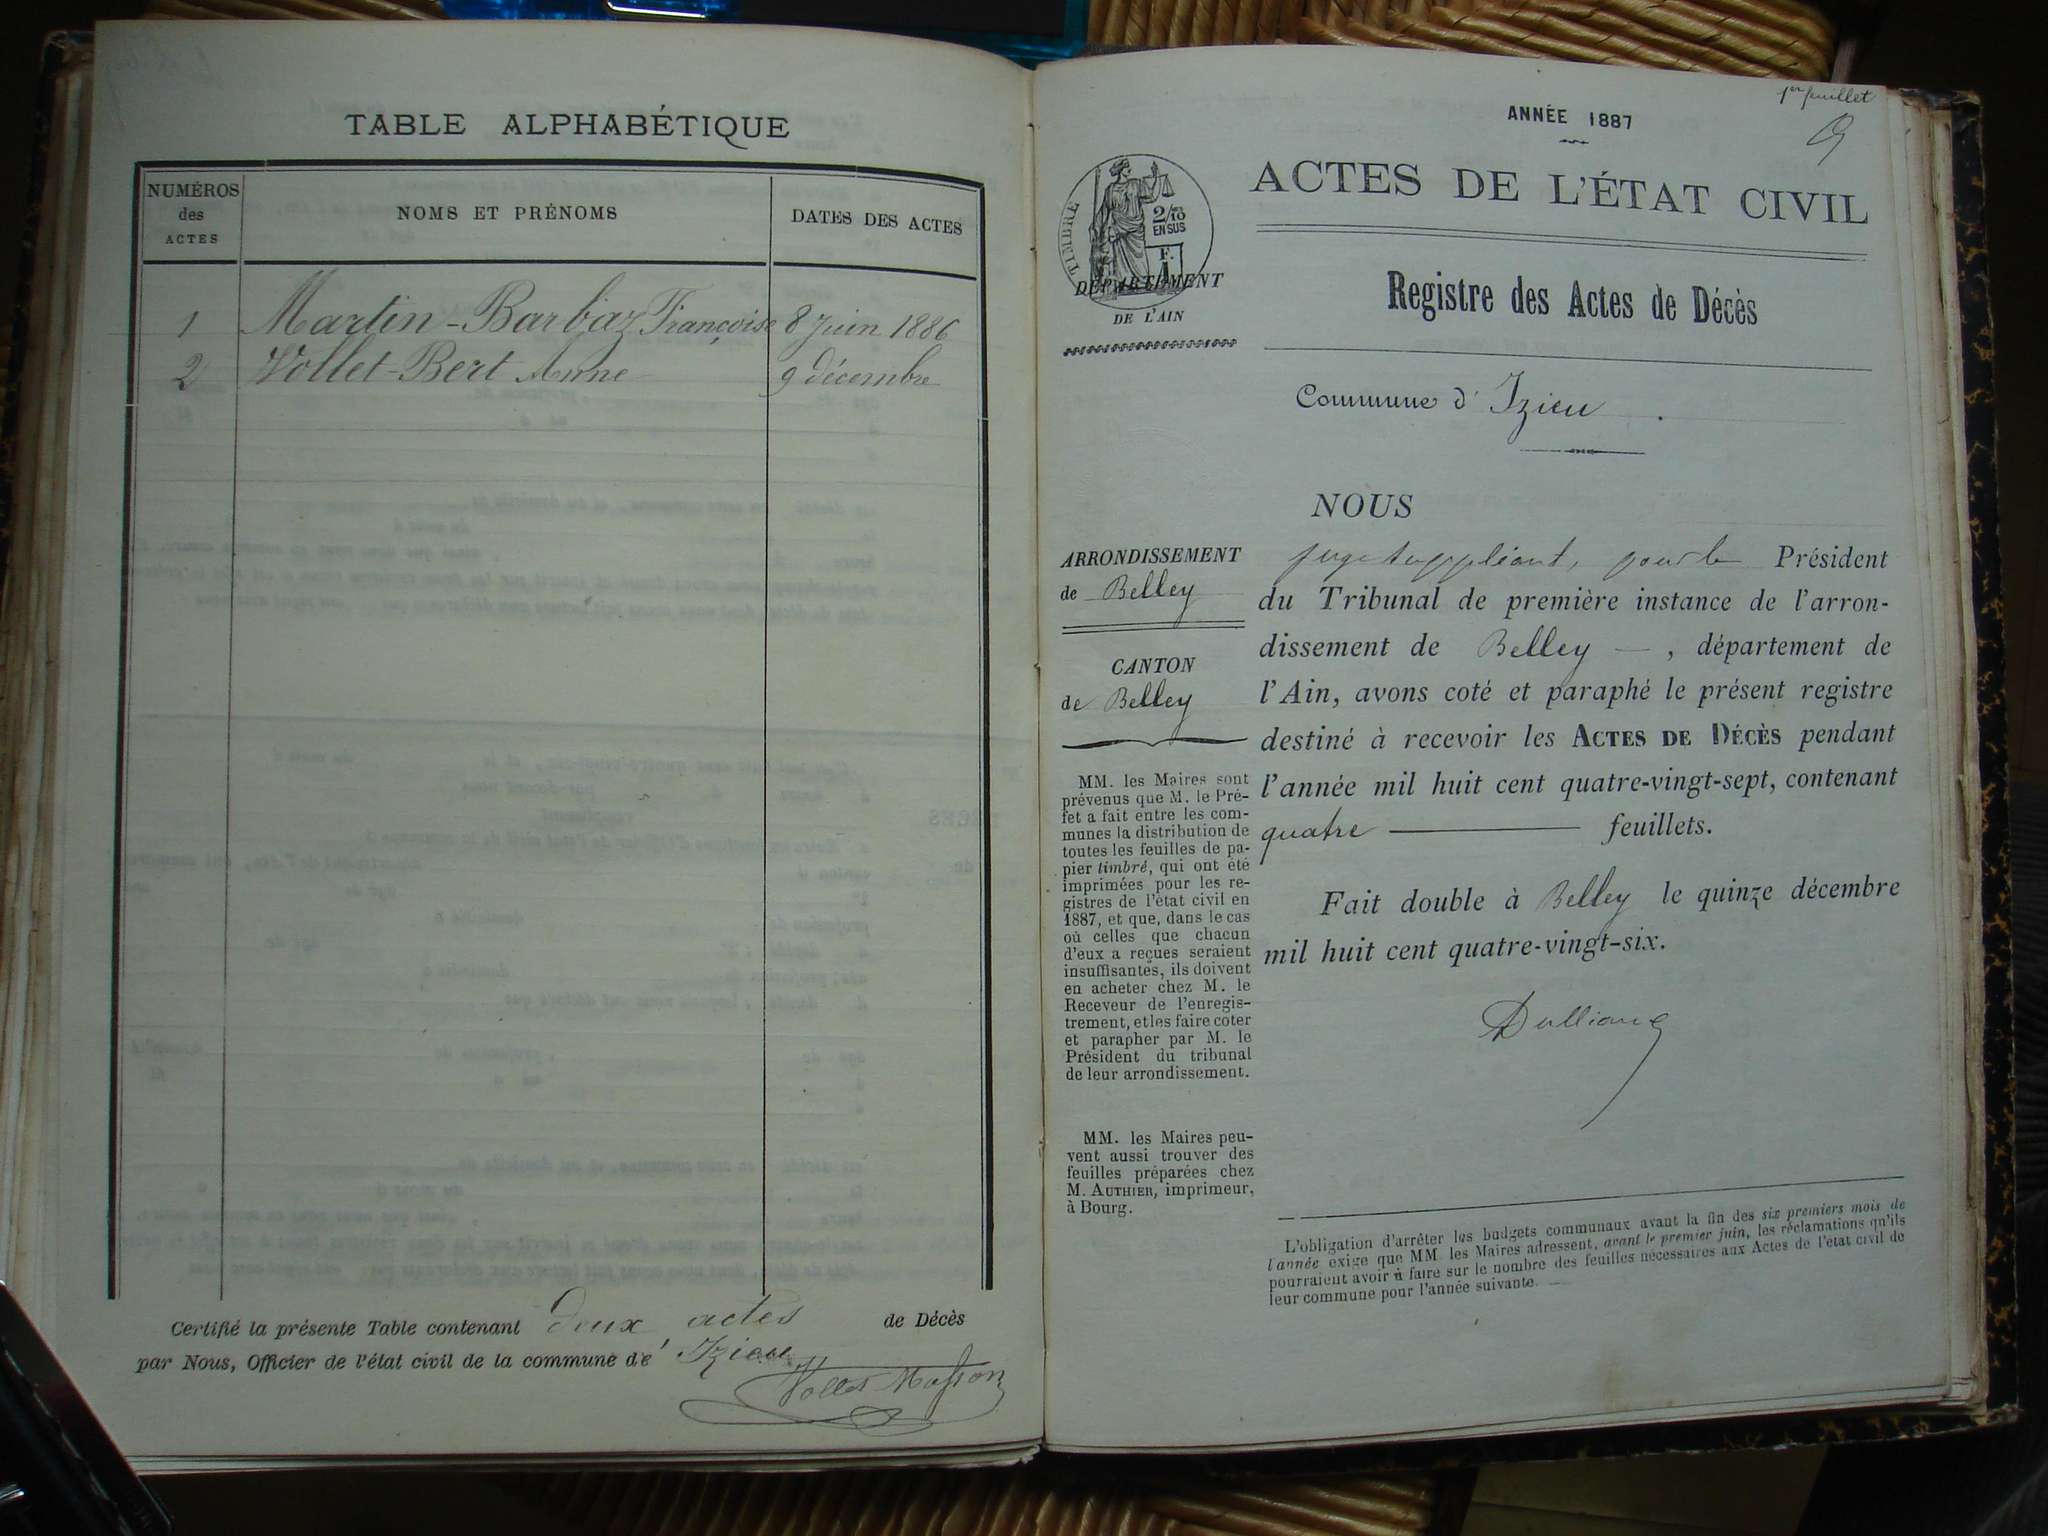 TABLE ALPHABÉTIQUE
NUMÉROS
des
ACTES
NOMS ET PRÉNOMS
DATES DES ACTES
1 Martin-Barbaz Françoise 8 Juin 1886
2 Vollet-Bert Anne 9 décembre
Certifié la présente Table contenant deux actes de Décès
par Nous, Officier de l'état civil de la commune de' Izieu
1er feuillet
ANNÉE 1887
ACTES DE L'ÉTAT CIVIL
TIMBRE
2/10
EN SUS
F.
1
DÉPARTEMENT
DE L'AIN
Registre des Actes de Décès
Commune d' Izieu.
ARRONDISSEMENT
de Belley
CANTON
de Belley
MM. les Maires sont
prévenus que M. le Pré-
fet a fait entre les com-
munes la distribution de
toutes les feuilles de pa-
pier timbré, qui ont été
imprimées pour les re-
gistres de l'état civil en
1887, et que, dans le cas
où celles que chacun
d'eux a reçues seraient
insuffisantes, ils doivent
en acheter chez M. le
Receveur de l'enregis-
trement, et les faire coter
et parapher par M. le
Président du tribunal
de leur arrondissement.
MM. les Maires peu-
vent aussi trouver des
feuilles préparées chez
M. AUTHIER, imprimeur,
à Bourg.
NOUS
juge suppléant, pour le Président
du Tribunal de première instance de l'arron-
dissement de Belley — , département de
l'Ain, avons coté et paraphé le présent registre
destiné à recevoir les ACTES DE DÉCÈS pendant
l'année mil huit cent quatre-vingt-sept, contenant
quatre — feuillets.
Fait double à Belley le quinze décembre
mil huit cent quatre-vingt-six.
L'obligation d'arrêter les budgets communaux avant la fin des six premiers mois de
l'année exige que MM. les Maires adressent, avant le premier juin, les réclamations qu'ils
pourraient avoir à faire sur le nombre des feuilles nécessaires aux Actes de l'état civil de
leur commune pour l'année suivante. —